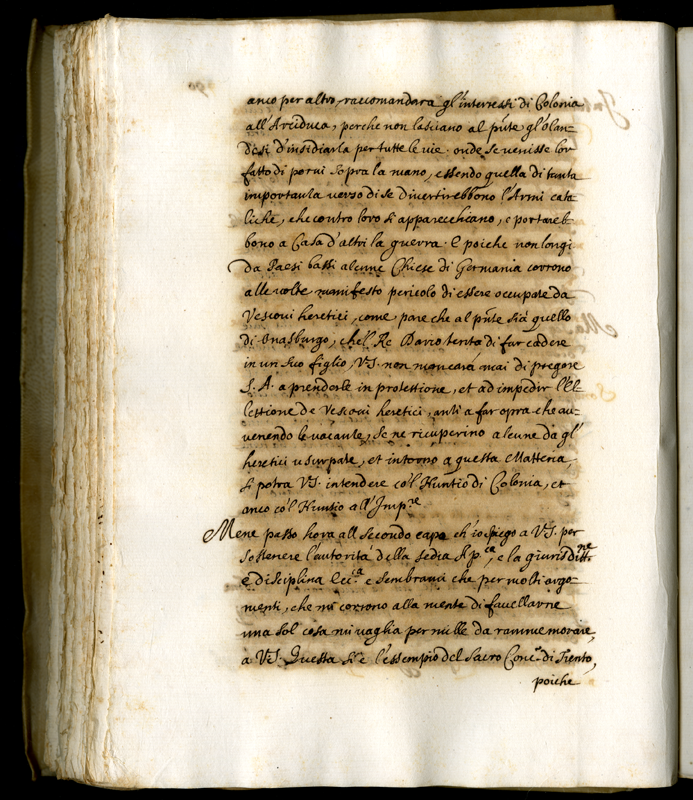 anco per altro, raccomandara gl'interessi di Colonia
all'Arciduca, perche non lasciano al pn̄te gl'olan-
desi d'insidiarla per tutte le vie. onde se venisse lor
fatto di porui sopra la mano, essendo quella di tanta
importanza verso di se divertirebbono l'Armi cata
liche, che contro loro si apparecchiano, e portareb-
bono a Casa d'altri la guerra. E poiche non longi
da Paesi bassi alcune Chiese di Germania corrono
alle volte manifesto pericolo di essere occupate da
Vescoui heretici, come pare che al pn̄te sia quello
di Osnasburgo, che'l Re Dano tenta di far cadere
in un suo figlio, V.S. non mancará mai di pregare
S. A. a prenderle in protettione, et ad impedir l'El-
lettione de Vescoui heretici, anzi a far opra che au-
venendo le vacante, se ne ricuperino alcune da gl'
heretici usurpate, et intorno a questa Matteria,
si potra V.S. intendere co'l Nuntio di Colonia, et
anco co'l Nuntio all'Imp.re
Mene passo hora all secondo capo ch'io spiego a V.S. per
sostenere l'autorità della sedia Ap.ca, e la giurisditt.ne
e disciplina Ecc.ca e sembrami che per molti argo-
menti, che mi corrono alla mente di fauellarne
una sol cosa mi vaglia per mille da rammemorare,
a V.S. Questa si é l'essempio del sacro Conc.o di Trento,
poiche